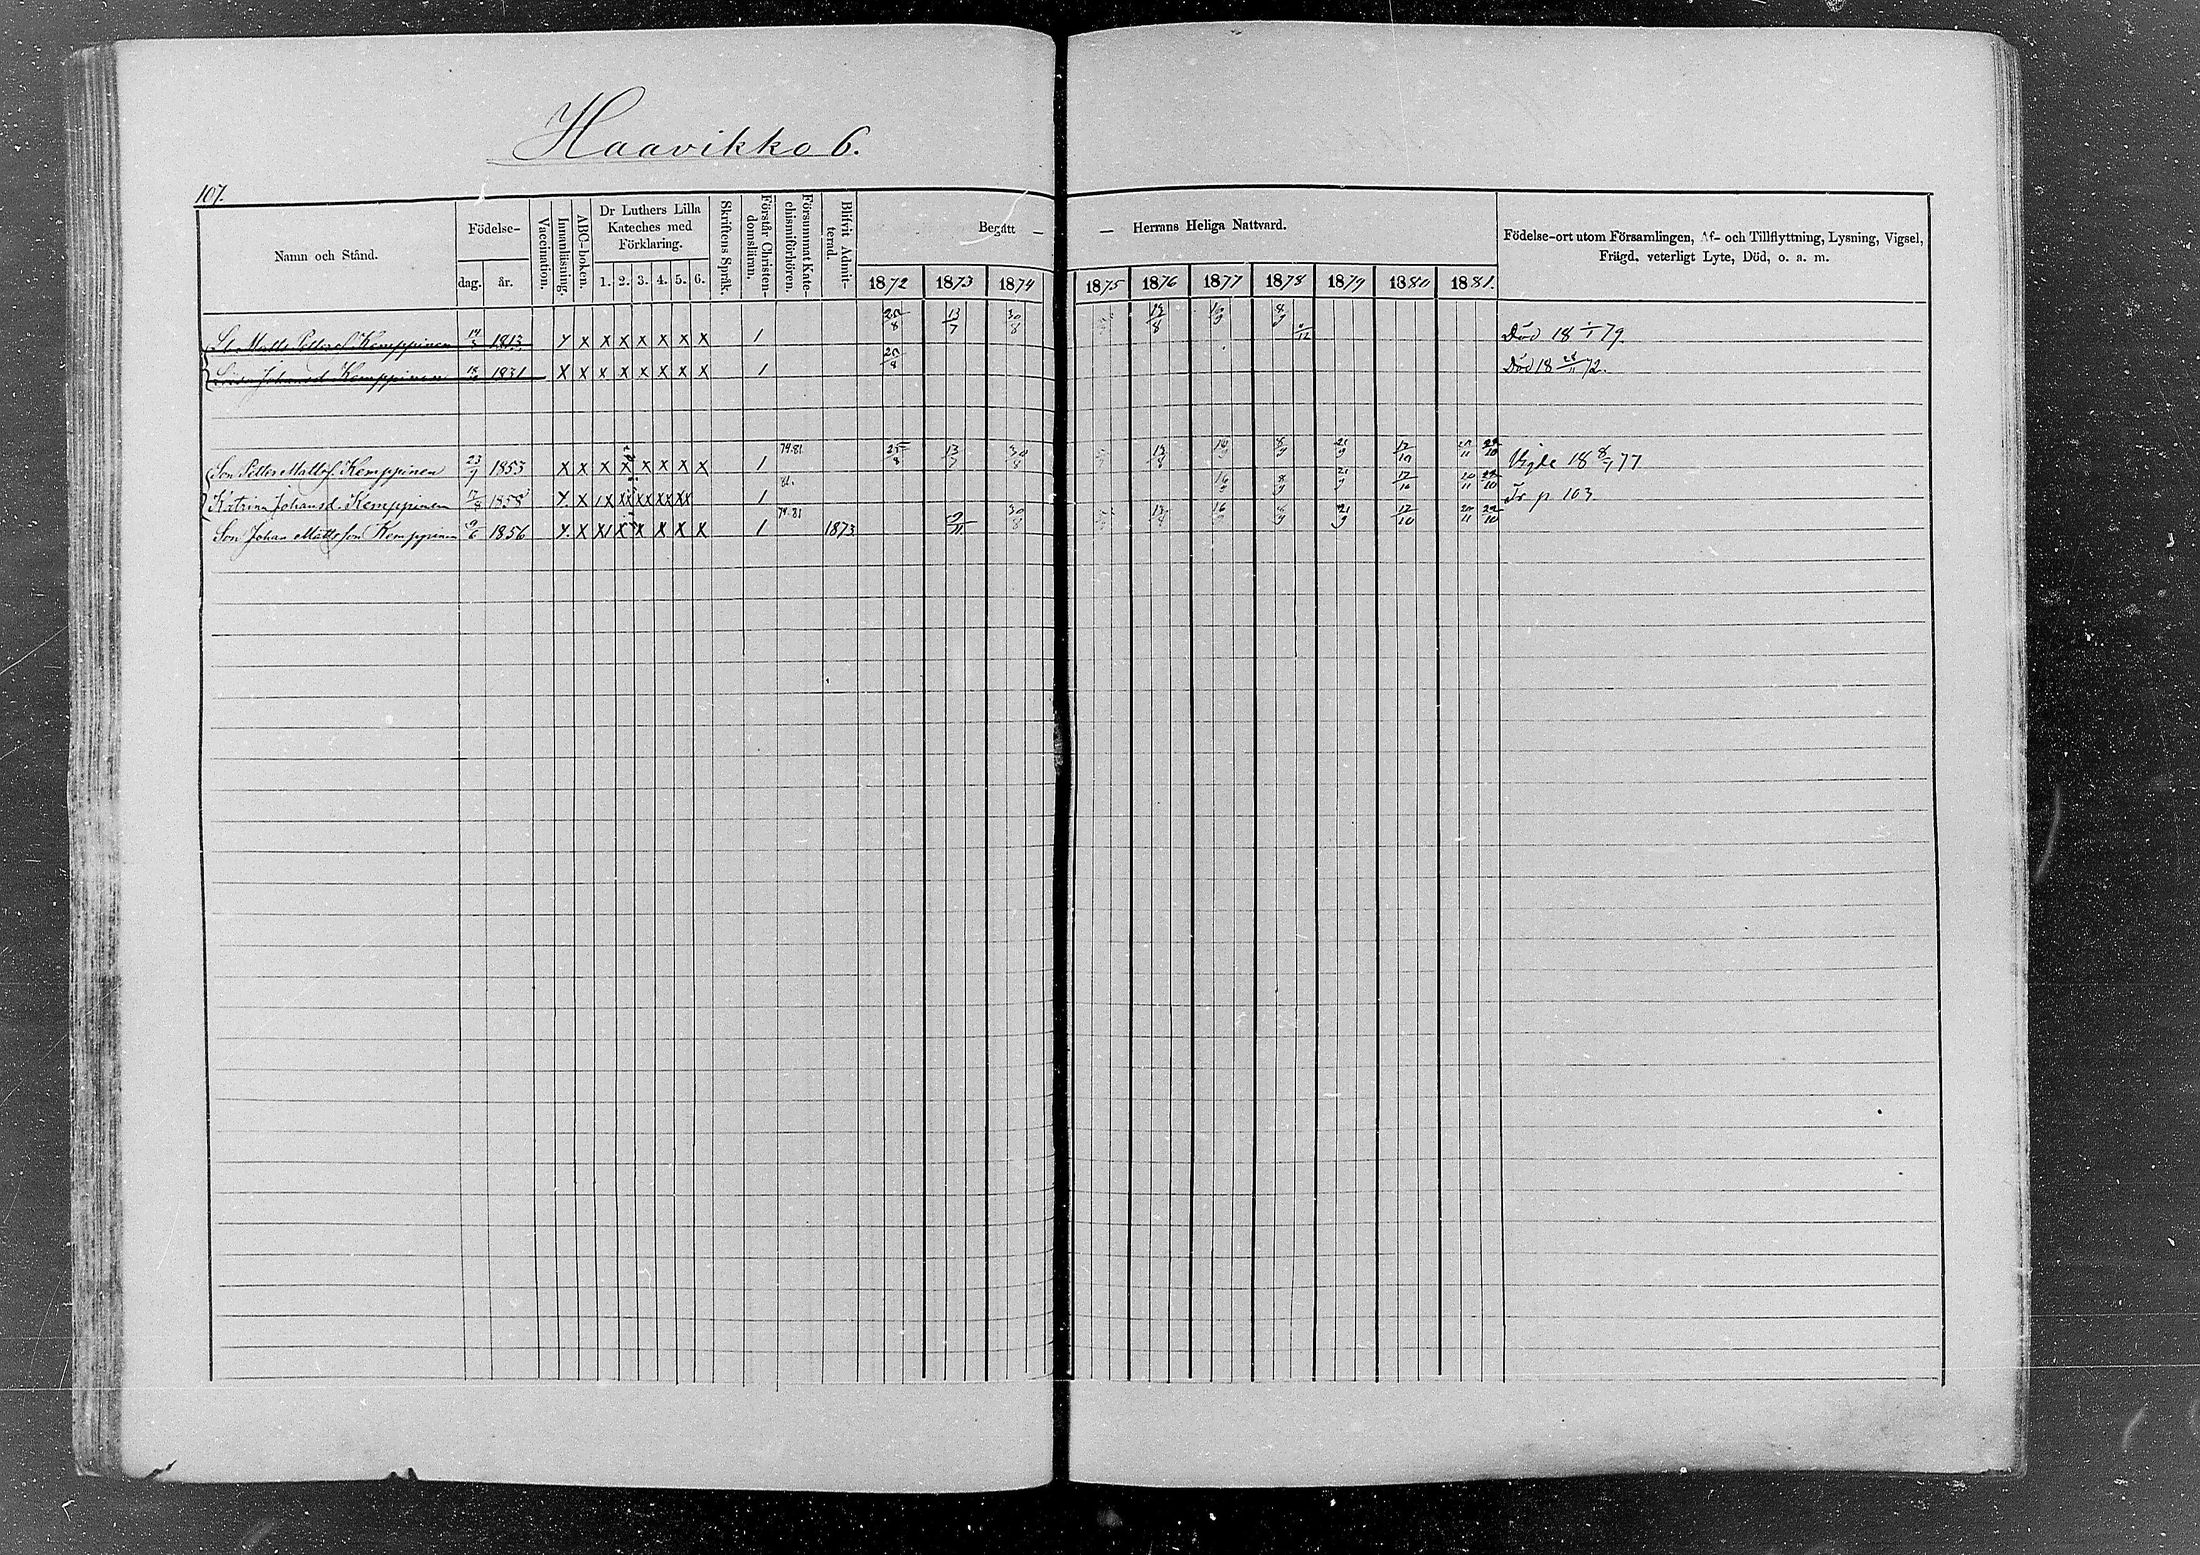 Haavikko 6.
107.
Namn och Stånd. Födelse- dag. år. Vaccination. Innanläsning. ABC-boken. Dr Luthers Lilla Kateches med Förklaring. 1. 2. 3. 4. 5. 6. Skriftens Språk. Förstår Christendomslären. Försummat Katechismiförhören. Blifvit Admitterad. Begått — — Herrans Heliga Nattvard. 1872 1873 1874 1875 1876 1877 1878 1879 1880 1881. Födelse-ort utom Församlingen, Af- och Tillflyttning, Lysning, Vigsel, Frägd, veterligt Lyte, Död, o. a. m.
Matts Kemppinen 1813 X X X X X X X 1 25/8 13/7 30/8 13/8 16/9 8/9 Död 18 79.
Johansd. Kemppinen 1831 X X X X X X X X 1 25/8 Död 18 72.
Son Petter Mattsf. Kemppinen 23/9 1853 X X X X X X X X 1 74.81 25/8 13/7 30/8 13/8 16/9 8/9 21/9 17/10 20/11 Vigde 18 8/7 77
Katrina Johansd. Kemppinen 17/8 1858 X 1 81. 16/9 8/9 21/9 17/10 20/11 Fr p 103
Son Johan Mattsson Kemppinen 9/6 1856 X X X X X X X 1 74.81 1873 9/11 30/8 13/8 16/9 8/9 21/9 17/10 20/11